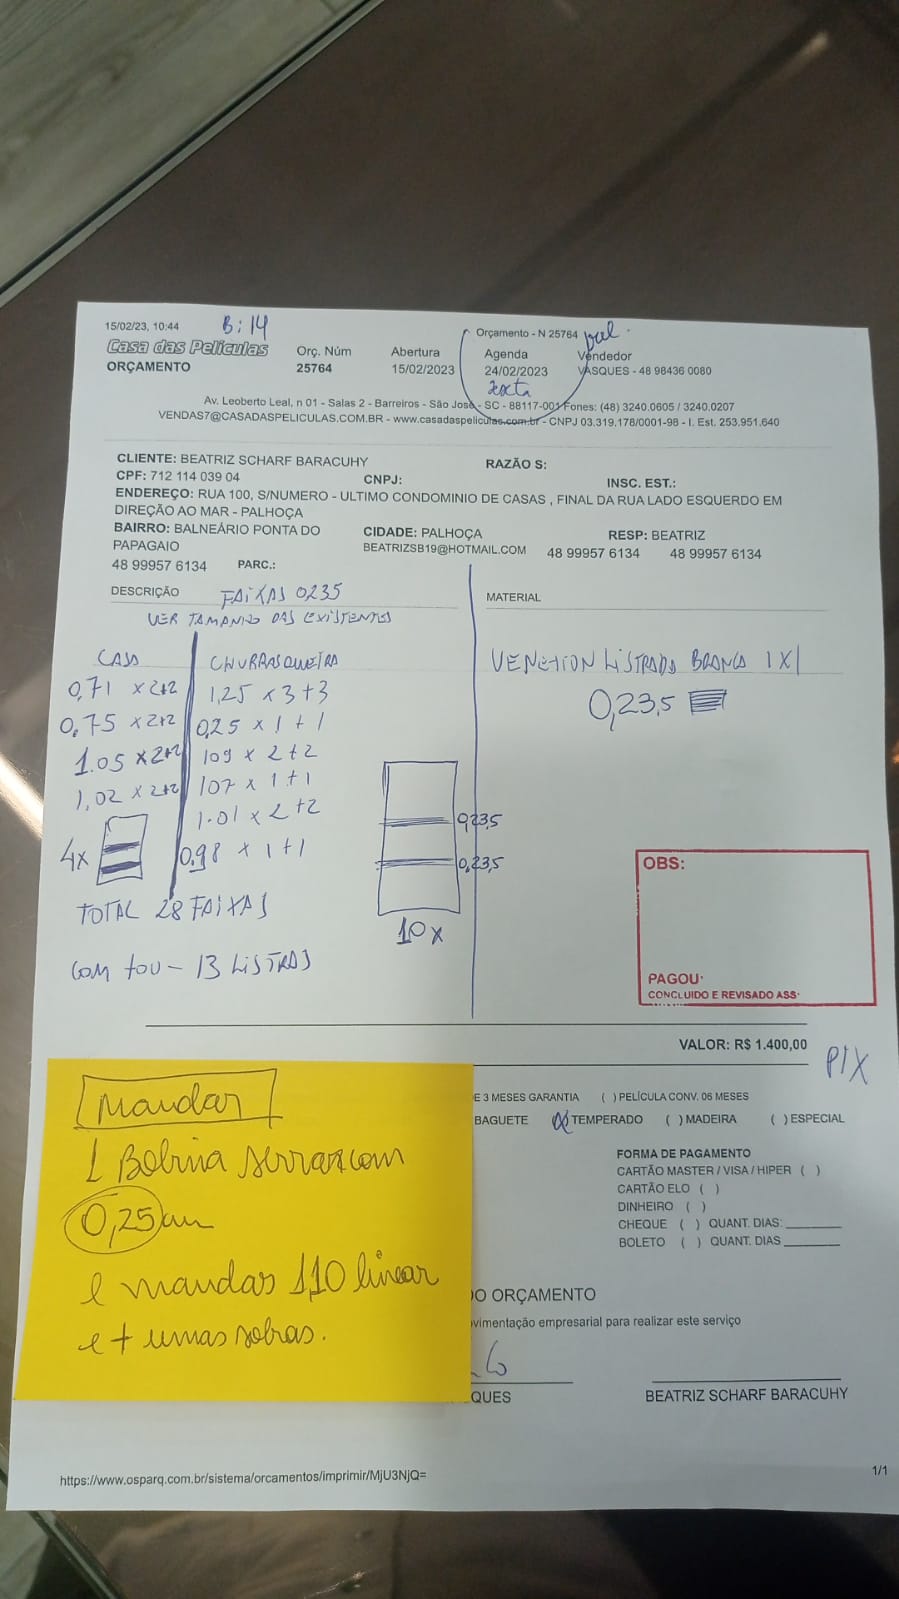 15/02/23, 10:44
B: 14
Orçamento - N 25764
Casa das Películas
ORÇAMENTO
Orç. Núm
25764
Abertura
15/02/2023
Agenda
24/02/2023
sexta
Vendedor
VASQUES - 48 98436 0080
Av. Leoberto Leal, n 01 - Salas 2 - Barreiros - São José - SC - 88117-001 Fones: (48) 3240.0605 / 3240.0207
VENDAS7@CASADASPELICULAS.COM.BR - www.casadaspeliculas.com.br - CNPJ 03.319.178/0001-98 - I. Est. 253.951.640
CLIENTE: BEATRIZ SCHARF BARACUHY
RAZÃO S:
CPF: 712 114 039 04
CNPJ:
INSC. EST.:
ENDEREÇO: RUA 100, S/NUMERO - ULTIMO CONDOMINIO DE CASAS , FINAL DA RUA LADO ESQUERDO EM
DIREÇÃO AO MAR - PALHOÇA
BAIRRO: BALNEÁRIO PONTA DO
PAPAGAIO
CIDADE: PALHOÇA
RESP: BEATRIZ
BEATRIZSB19@HOTMAIL.COM
48 99957 6134
48 99957 6134
48 99957 6134
PARC.:
DESCRIÇÃO
FAIXAS 0235
MATERIAL
VER TAMANHO DAS EXISTENTES
CASA
0,71 x 2+2
0,75 x 2+2
1.05 x 2+2
1,02 x 2+2
4x
CHURRASQUEIRA
1,25 x 3+3
0,25 x 1+1
109 x 2+2
107 x 1+1
1.01 x 2+2
0.98 x 1+1
0,23,5
0,23,5
10x
TOTAL 28 FAIXAS
13 LISTRAS
LISTRADA BRANCA 1X1
0,23,5
OBS:
PAGOU:
CONCLUIDO E REVISADO ASS:
VALOR: R$ 1.400,00
PIX
Mandar
1 Bobina
0,25 cm
e mandar 1,10 linear
e + umas sobras.
E 3 MESES GARANTIA ( ) PELÍCULA CONV. 06 MESES
BAGUETE (X) TEMPERADO ( ) MADEIRA ( ) ESPECIAL
FORMA DE PAGAMENTO
CARTÃO MASTER / VISA / HIPER ( )
CARTÃO ELO ( )
DINHEIRO ( )
CHEQUE ( ) QUANT. DIAS:
BOLETO ( ) QUANT. DIAS
O ORÇAMENTO
ovimentação empresarial para realizar este serviço
QUES
BEATRIZ SCHARF BARACUHY
https://www.osparq.com.br/sistema/orcamentos/imprimir/MjU3NjQ=
1/1